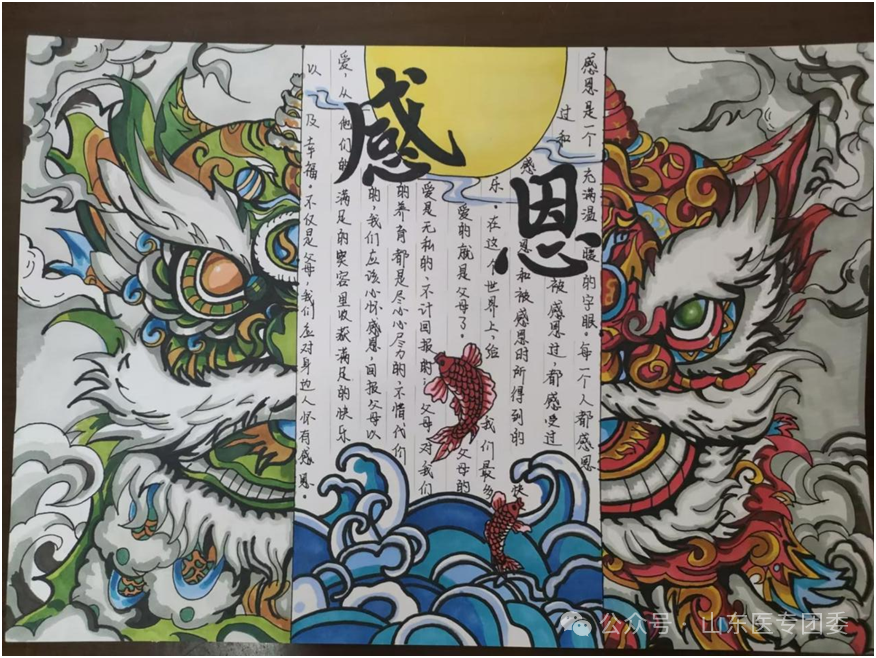 感恩
感恩是一个充满温暖的字眼。每一个人都感恩
过和被感恩过，都感受过
感恩和被感恩时所得到的快
乐。在这个世界上，给我们最多
爱的就是父母了。父母的
爱是无私的、不计回报的；父母对我们
的养育都是尽心尽力的，不惜代价
的，我们应该心怀感恩，回报父母以
爱，从他们的满足的笑容里收获满足的快乐
以及幸福。不仅是父母，我们应对身边人怀有感恩。
公众号 · 山东医专团委